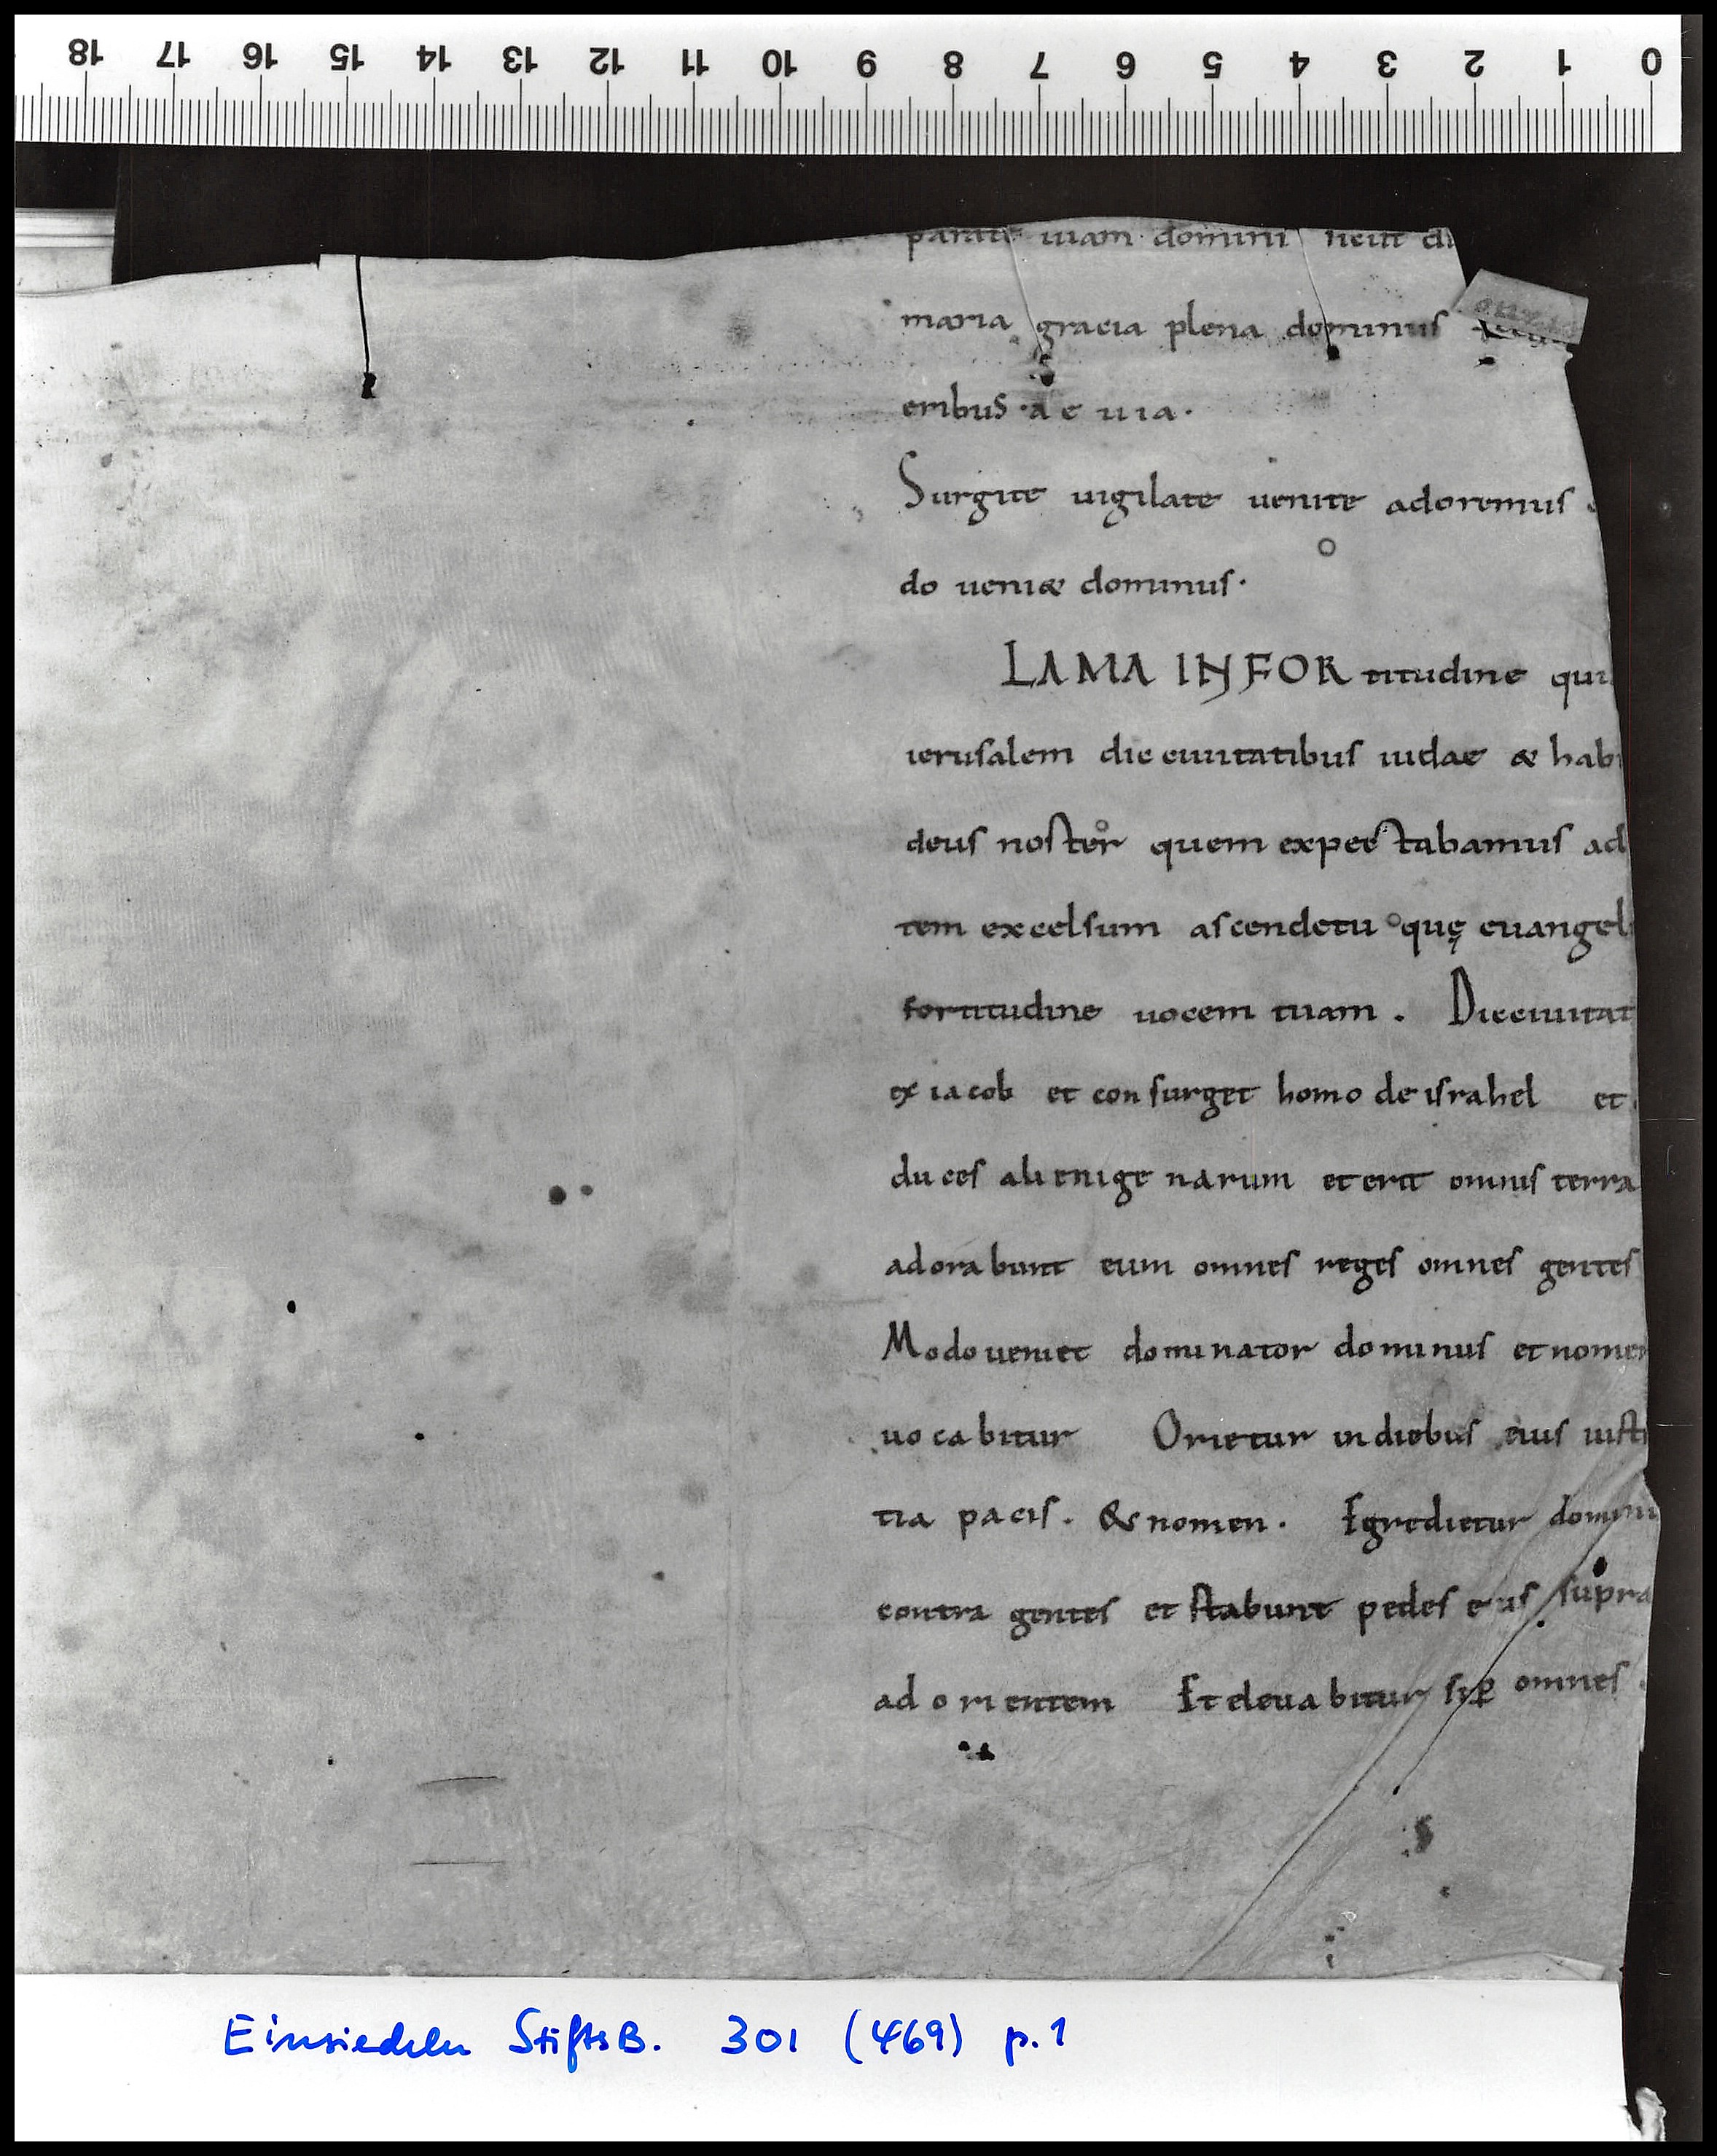 18 17 16 15 14 13 12 11 10 9 8 7 6 5 4 3 2 1 0
parate uiam domini sicut di
maria gracia plena dominus
eribus · a e u i a ·
Surgite uigilate uenite adoremus
do ueni& dominus ·
LAMA IN FORtitudine qui
ierusalem dic ciuitatibus iudae & habi
deus noster quem expectabamus ad
tem excelsum ascende tu quę euangeli
fortitudine uocem tuam . Dic ciuitat
ex iacob et consurget homo de israhel et
duces alienigenarum et erit omnis terra
adorabunt eum omnes reges omnes gentes
Modo ueniet dominator dominus et nomen
uocabitur Orietur in diebus eius iusti
tia pacis . & nomen . Egredietur domin
contra gentes et stabunt pedes eius supra
ad orientem Et eleuabitur sup omnes
Einsiedeln StiftsB. 301 (469) p. 1